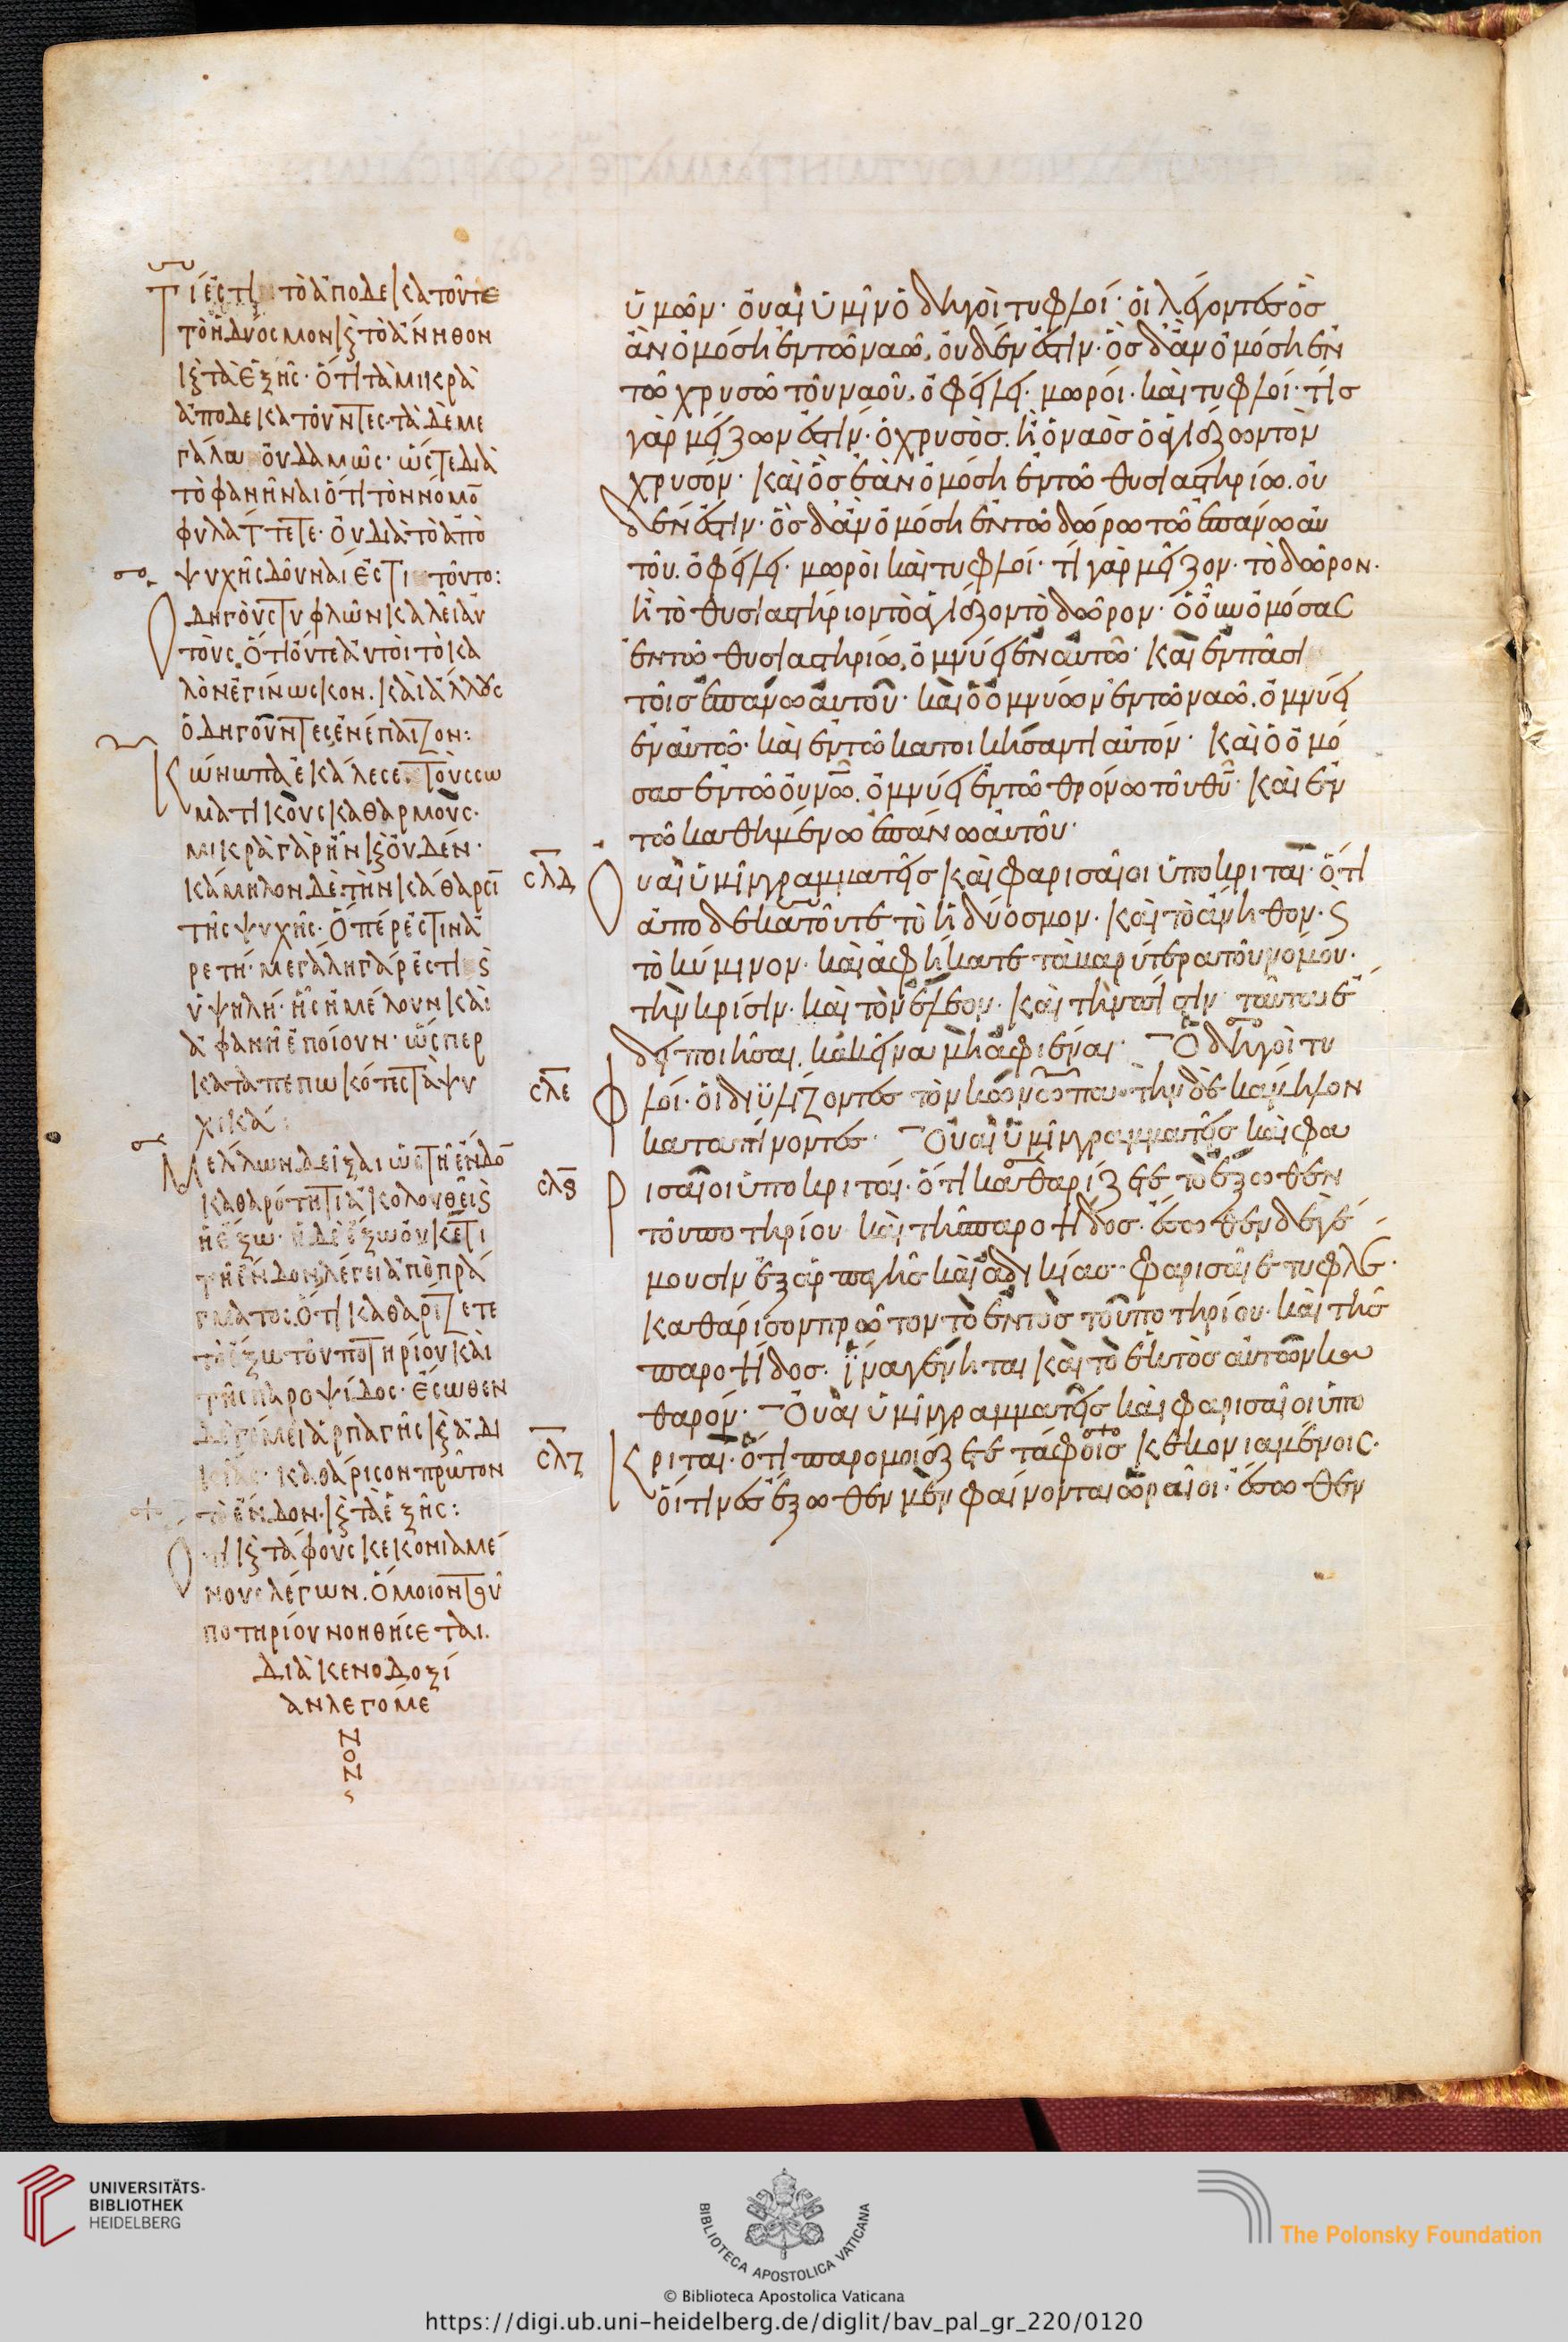 Τί ἐστι τὸ ἀποδεκατοῦτε
τὸ ἡδύοσμον κ τὸ ἄνηθον
κ τὰ ἑξῆς· ὅτι τὰ μικρὰ
ἀποδεκατοῦντες· τὰ δὲ με
γάλα οὐδαμῶς· ὥστε διὰ
τὸ φανῆναι ὅτι τὸν νόμο̅
φυλάττετε· οὐ διὰ τὸ ἀπὸ
ψυχῆς δοῦναί ἐστι τοῦτο:
Ὁδηγοὺς τυφλῶν καλεῖ αὐ
τοὺς, ὅτι οὔτε αὐτοὶ τὸ κα
λὸν ἐγίνωσκον. καὶ ἄλλους
ὁδηγοῦντες ἐνέπαιζον:
Κώνωπα ἐκάλεσε τοὺς σω
ματικοὺς καθαρμούς·
μικρὰ γὰρ ἦν κ οὐδέν·
κάμηλον δὲ τὴν κάθαρσι̅
τῆς ψυχῆς· ὅπερ ἐστιν ἀ
ρετή· μεγάλη γάρ ἐστι κ
ὑψηλή· ἧς ἠμέλουν καὶ
ἀφανῆ ἐποίουν· ὥσπερ
καταπεπωκότες τὰ ψυ
χικά:
Μέλλων δεῖξαι ὡς τῆ ἔνδο̅
καθαρότητι ἀκολουθεῖ κ
ἡ ἔξω· ἡ δὲ ἔξω οὐκέτι
τῆ ἔνδον, λέγει ἀπὸ πρά
γματος· ὅτι καθαρίζετε
τὸ ἔξω τοῦ ποτηρίου καὶ
τῆς παροψίδος· ἔσωθεν
δὲ γέμει ἁρπαγῆς κ ἀδι
κίας· καθάρισον πρῶτον
τὸ ἔνδον· κ τὰ ἑξῆς:
κ τάφους κεκονιαμέ
νους λέγων. ὅμοιον τοῦ
ποτηρίου νοηθήσεται.
διὰ κενοδοξί
αν λεγόμε
νον
ὑμῶν· οὐαὶ ὑμῖν ὁδηγοὶ τυφλοί· οἱ λέγοντες ὃς
ἂν ὀμόση ἐν τῶ ναῶ, οὐδέν ἐστιν· ὃς δ' ἂν ὀμόση ἐν
τῶ χρυσῶ τοῦ ναοῦ, ὀφείλει· μωροὶ καὶ τυφλοί· τίς
γὰρ μείζων ἐστίν· ὁ χρυσὸς. ἢ ὁ ναὸς ὁ ἁγιάζων τὸν
χρυσόν· Καὶ ὃς ἐὰν ὀμόση ἐν τῶ θυσιαστηρίω. οὐ
δέν ἐστιν· ὃς δ' ἂν ὀμόση ἐν τῶ δώρω τῶ ἐπάνω αὐ
τοῦ. ὀφείλει· μωροὶ καὶ τυφλοί· τί γὰρ μεῖζον· τὸ δῶρον·
ἢ τὸ θυσιαστήριον τὸ ἁγιάζον τὸ δῶρον· ὁ οὖν ὀμόσας
ἐν τῶ θυσιαστηρίω, ὀμνύει ἐν αὐτῶ· Καὶ ἐν πᾶσι
τοῖς ἐπάνω αὐτοῦ· καὶ ὁ ὀμνύων ἐν τῶ ναῶ, ὀμνύει
ἐν αὐτῶ· καὶ ἐν τῶ κατοικήσαντι αὐτόν· Καὶ ὁ ὀμό
σας ἐν τῶ οὐνῶ, ὀμνύει ἐν τῶ θρόνω τοῦ θυ̅· Καὶ ἐν
τῶ καθημένω ἐπάνω αὐτοῦ·
σλδ Οὐαὶ ὑμῖν γραμματεῖς καὶ φαρισαῖοι ὑποκριταί· ὅτι
ἀποδεκατοῦτε τὸ ἡδύοσμον· Καὶ τὸ ἄνηθον· κ
τὸ κύμινον· καὶ ἀφήκατε τὰ βαρύτερα τοῦ νόμου·
τὴν κρίσιν· καὶ τὸν ἔλεον· Καὶ τὴν πίστιν ταῦτα ἔ
δει ποιῆσαι, κἀκεῖνα μὴ ἀφιέναι· Ὁδηγοὶ τυ
σλε φλοί· οἱ διϋλίζοντες τὸν κώνωπα· τὴν δὲ κάμηλον
καταπίνοντες· Οὐαὶ ὑμῖν γραμματεῖς καὶ φα
σλϛ ρισαῖοι ὑποκριταί· ὅτι καθαρίζετε τὸ ἔξωθεν
τοῦ ποτηρίου καὶ τῆς παροψίδος· ἔσωθεν δὲ γέ
μουσιν ἐξ ἁρπαγῆς καὶ ἀδικίας· Φαρισαῖε τυφλέ·
καθάρισον πρῶτον τὸ ἐντὸς τοῦ ποτηρίου· καὶ τῆς
παροψίδος· ἵνα γένηται καὶ τὸ ἐκτὸς αὐτῶν κα
θαρόν· Οὐαὶ ὑμῖν γραμματεῖς καὶ φαρισαῖοι ὑπο
σλζ Κριταί· ὅτι παρομοιάζετε τάφοις κεκονιαμένοις·
οἵτινες ἔξωθεν μὲν φαίνονται ὡραῖοι· ἔσωθεν
UNIVERSITÄTS-
BIBLIOTHEK
HEIDELBERG
BIBLIOTECA APOSTOLICA VATICANA
© Biblioteca Apostolica Vaticana
The Polonsky Foundation
https://digi.ub.uni-heidelberg.de/diglit/bav_pal_gr_220/0120